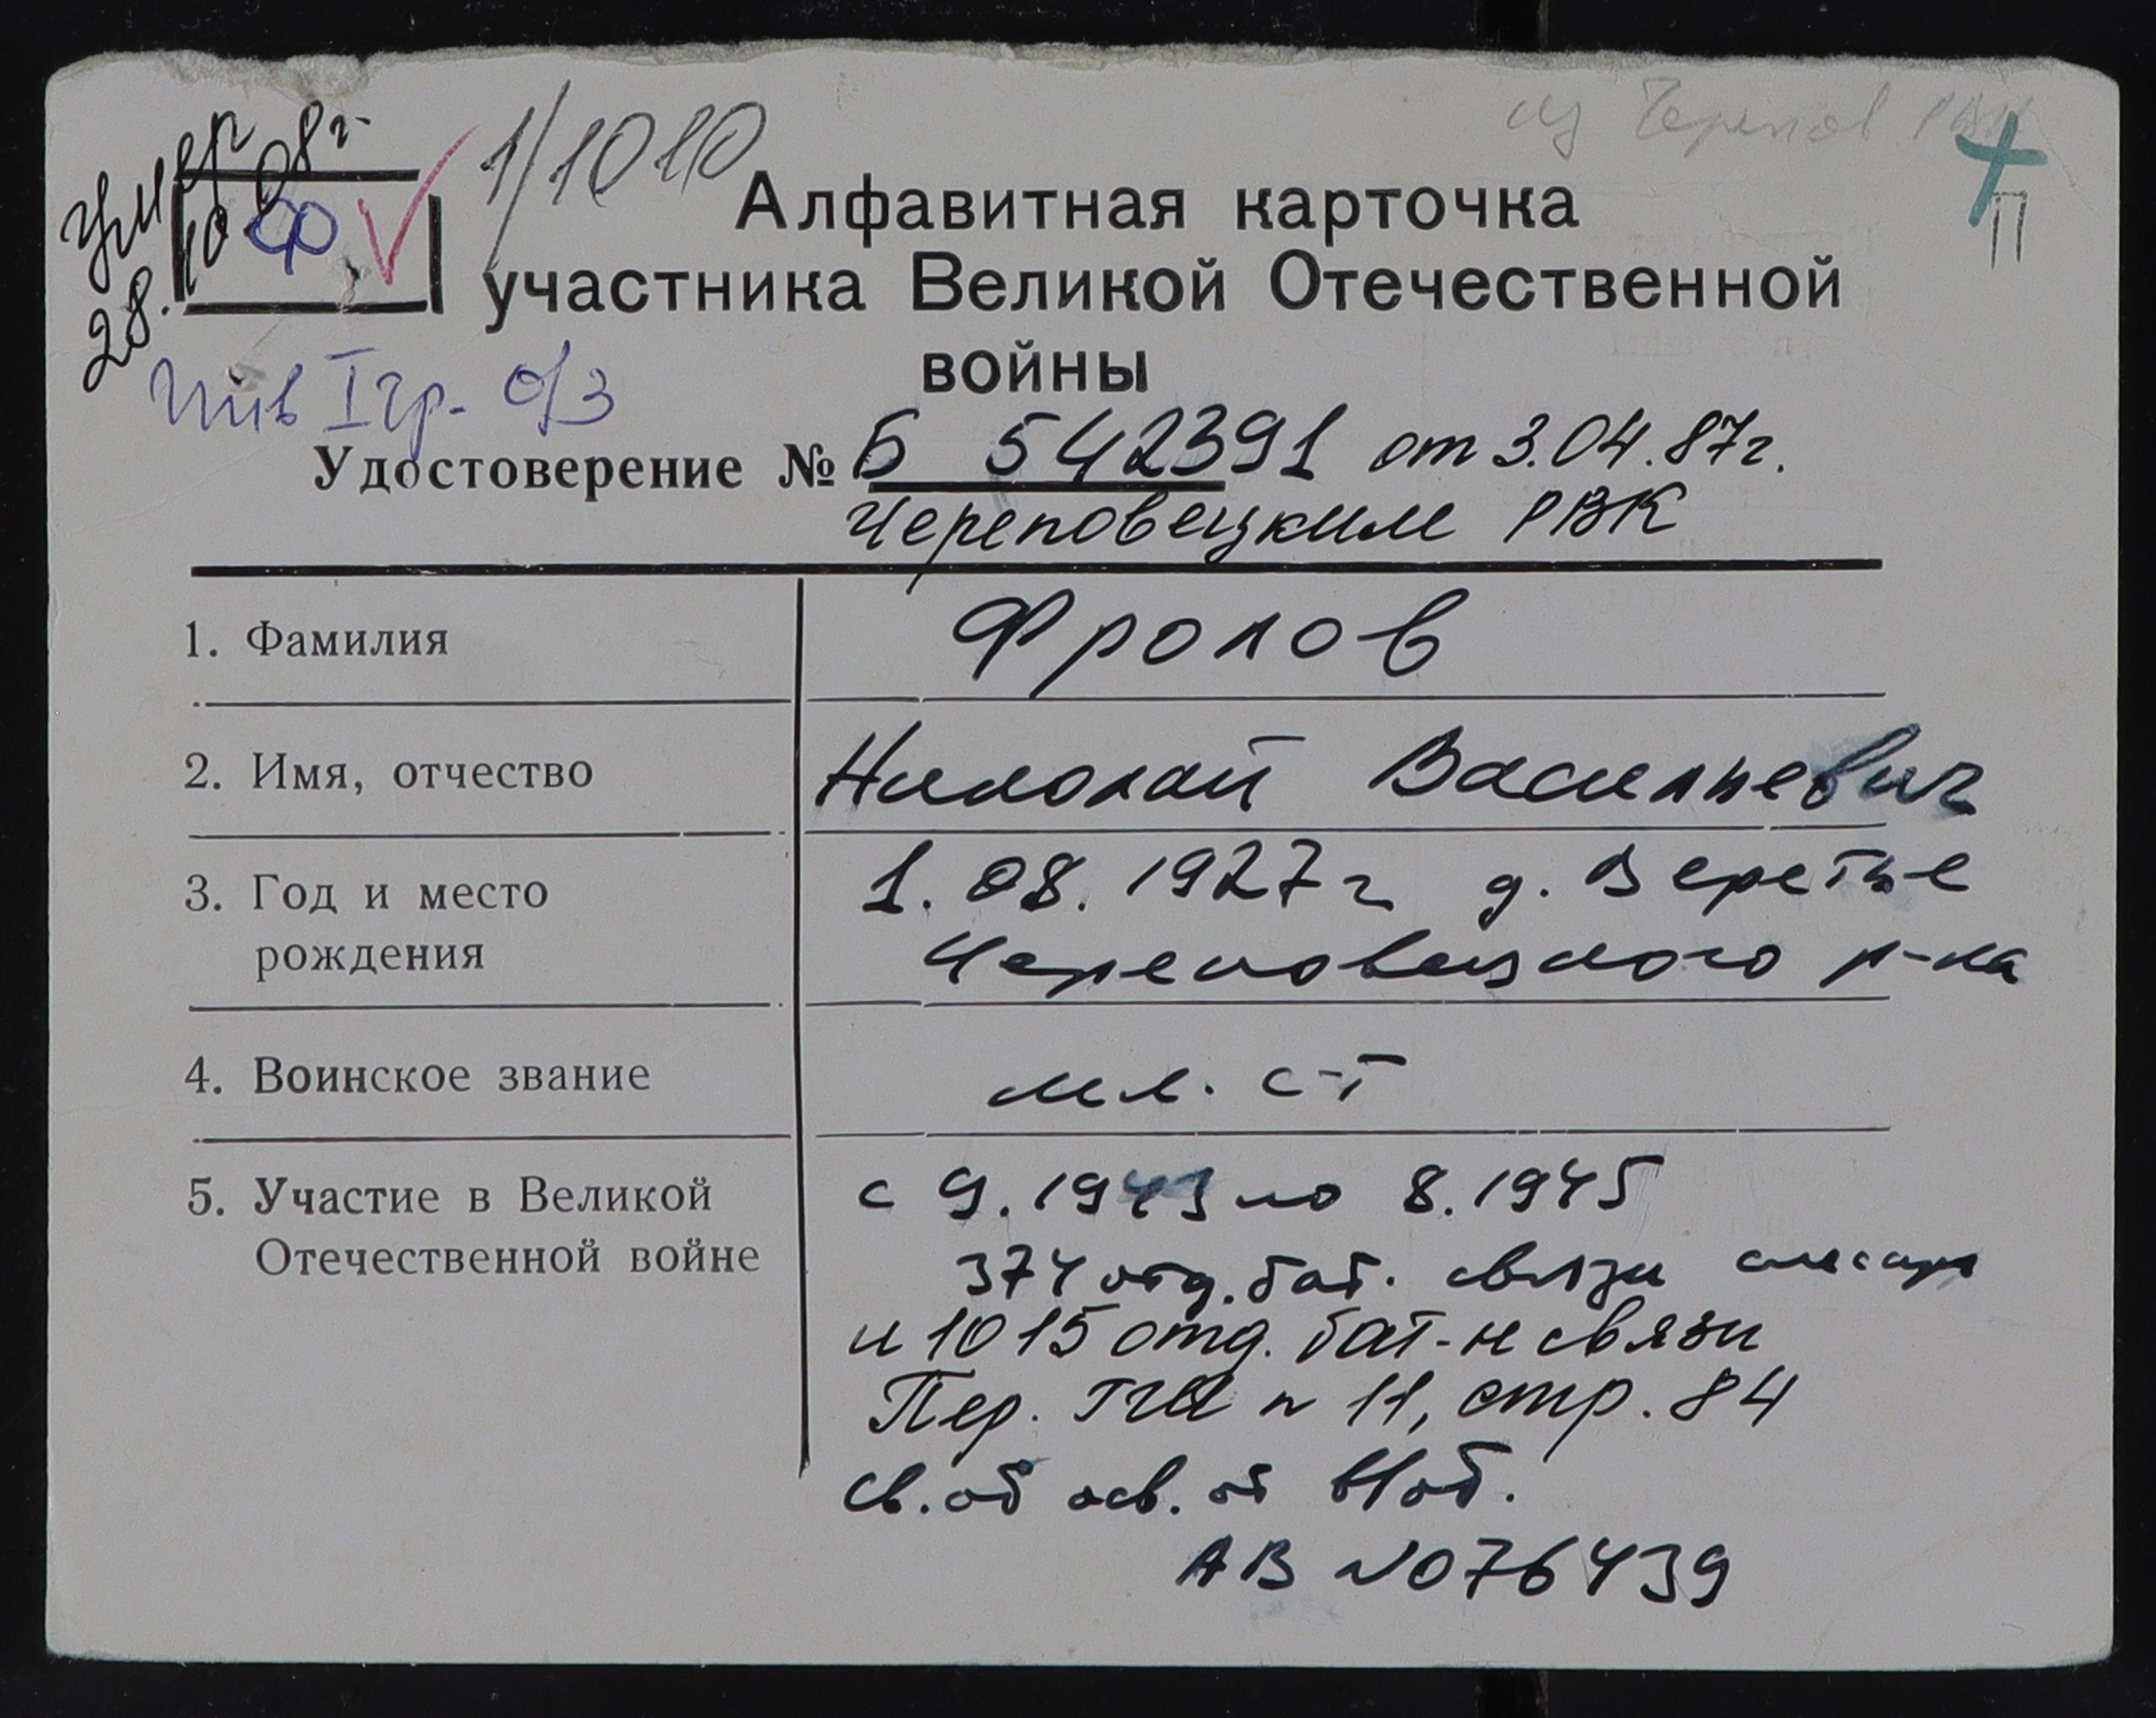 из Черепов РВК
1/1010
умер
28.10.08г.
Ф
П
Алфавитная карточка
участника Великой Отечественной
войны
инв I гр. о/з
Удостоверение № Б 542391 от 3.04.87г.
Череповецким РВК
1. Фамилия Фролов
2. Имя, отчество Николай Васильевич
3. Год и место 1.08.1927г д. Веретье
рождения Череповецкого р-на
4. Воинское звание мл. с-т
5. Участие в Великой с 9.1943 по 8.1945
Отечественной войне 374 отд. бат. связи слесарь
и 1015 отд. бат-н связи
Пер. ГШ № 11, стр. 84
св. об осв. от
АВ № 076439